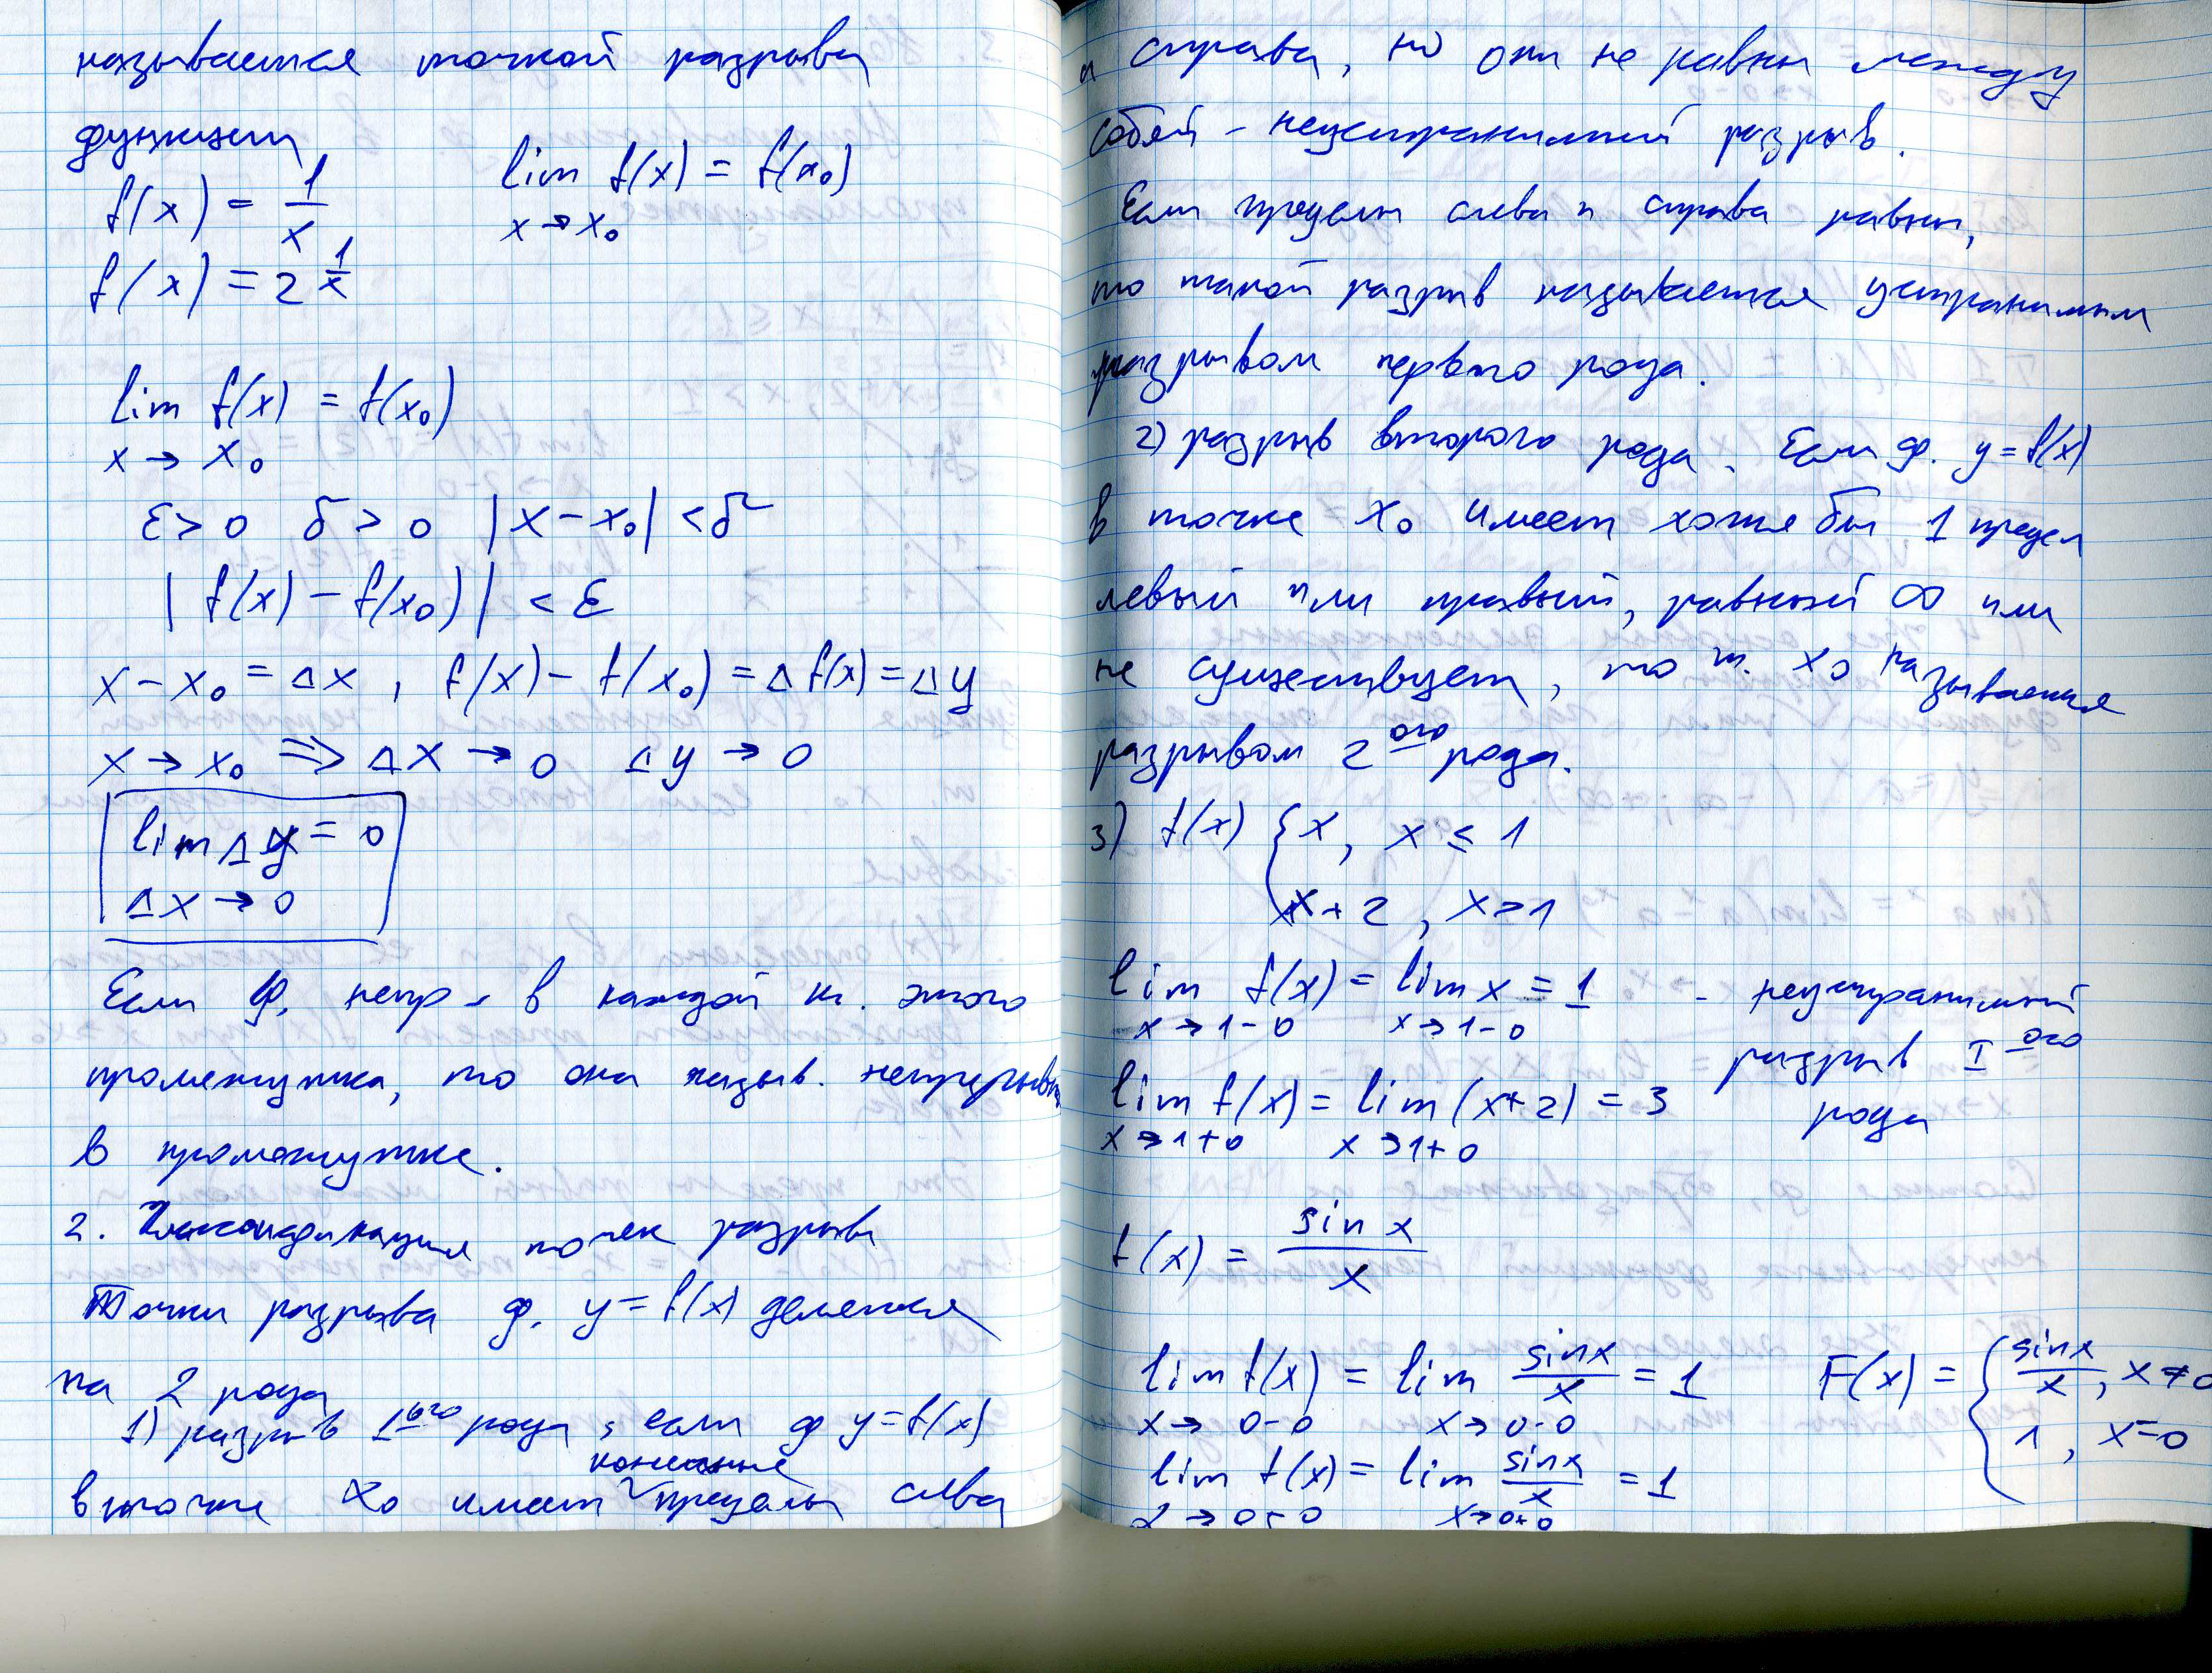 называется точкой разрыва
функции
f(x) = 1/x    lim f(x) = f(x₀)
x → x₀
f(x) = 2^(1/x)
lim f(x) = f(x₀)
x → x₀
ε > 0 δ > 0 |x − x₀| < δ
|f(x) − f(x₀)| < ε
x − x₀ = Δx, f(x) − f(x₀) = Δf(x) = Δy
x → x₀ ⇒ Δx → 0 Δy → 0
lim Δy = 0
Δx → 0
Если ф. непр - в каждой т. этого
промежутка, то она назыв. непрерывн
в промежутке.
2. Классификация точек разрыва
Точки разрыва ф. y = f(x) делятся
на 2 рода
1) разрыв 1ого рода, если ф y = f(x)
конечные
в точке x₀ имеет пределы слева
и справа, но они не равны между
собой - неустранимый разрыв.
Если пределы слева и справа равны,
то такой разрыв называется устранимым
разрывом первого рода.
2) разрыв второго рода. Если ф. y = f(x)
в точке x₀ имеет хотя бы 1 предел
левый или правый, равный ∞ или
не существует, то т. x₀ называется
разрывом 2ого рода.
3) f(x) { x, x ≤ 1
x + 2, x > 1
lim f(x) = lim x = 1 - неустранимый
x → 1 − 0 x → 1 − 0
разрыв I ого
lim f(x) = lim (x + 2) = 3 рода
x → 1 + 0 x → 1 + 0
f(x) = sin x / x
lim f(x) = lim sin x / x = 1 F(x) = { sin x / x, x ≠ 0
x → 0 − 0 x → 0 − 0 1, x = 0
lim f(x) = lim sin x / x = 1
x → 0 + 0 x → 0 + 0